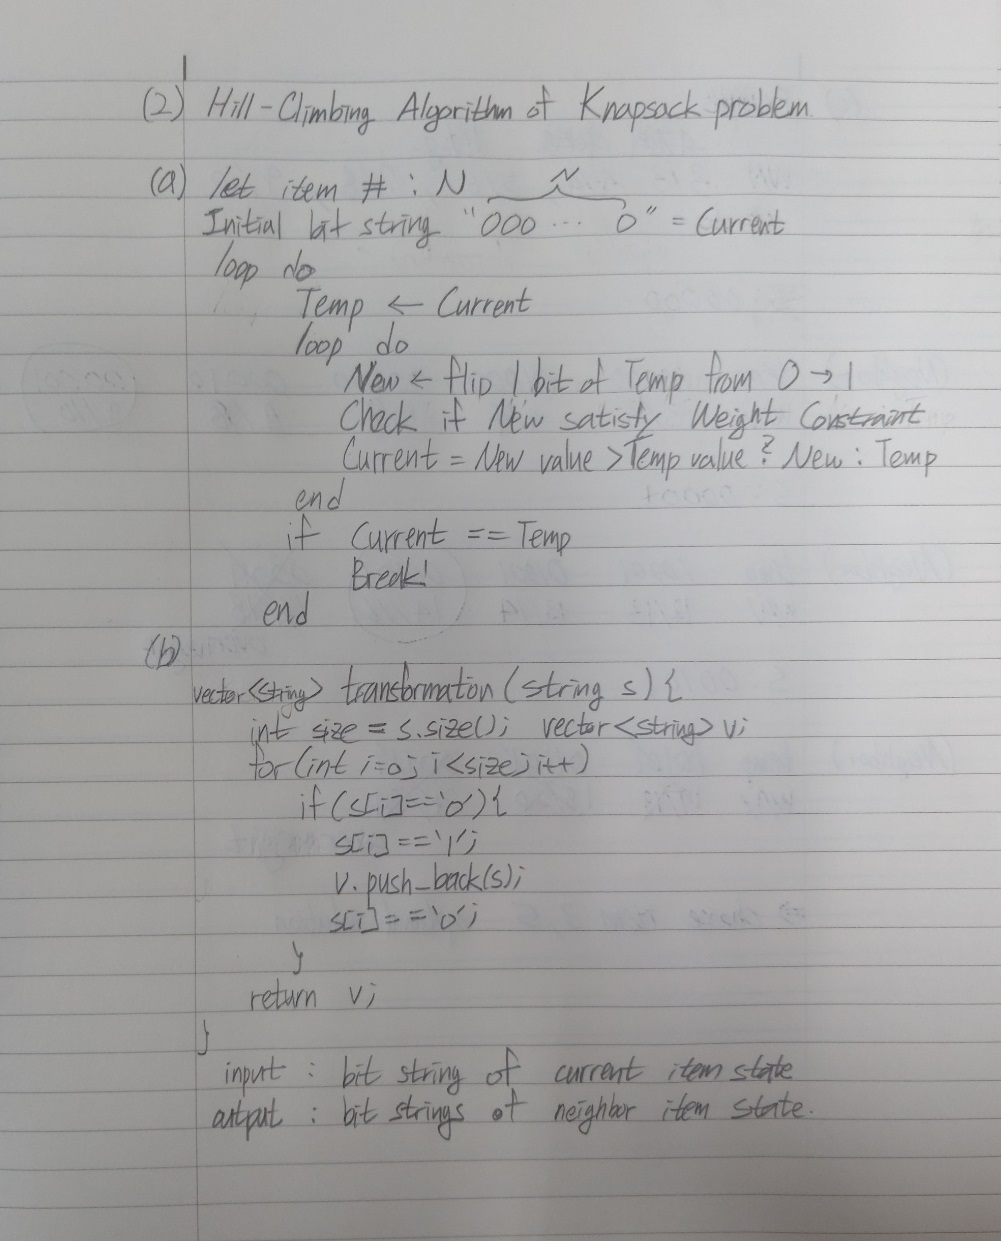 (2) Hill-Climbing Algorithm of Knapsack problem
(a) let item # : N
N
Initial bit string "000 ... 0" = Current
loop do
Temp ← Current
loop do
New ← flip 1 bit of Temp from 0 → 1
Check if New satisfy Weight Constraint
Current = New value > Temp value ? New : Temp
end
if Current == Temp
Break!
end
(b)
vector<string> transformation (string s) {
int size = s.size(); vector<string> v;
for (int i=0; i<size; i++)
if (s[i]=='0') {
s[i]=='1';
v.push_back(s);
s[i]=='0';
}
return v;
}
input : bit string of current item state
output : bit strings of neighbor item state.